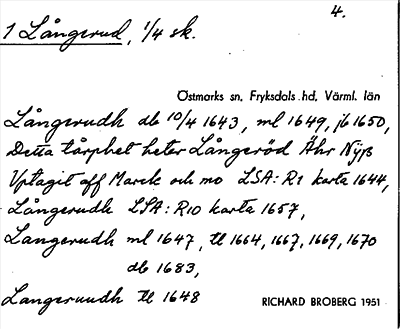 4.
1 Långerud, 1/4 sk.
Östmarks sn, Fryksdals hd, Värml. län
Långerudh db 10/4 1643, ml 1649, jb 1650,
Detta tårphet heter Långeröd Ähr Nÿß
Vptagit aff Marck och mo LSA: R1 karta 1644,
Långerudh LSA: R10 karta 1657,
Langerudh ml 1647, tl 1664, 1667, 1669, 1670
db 1683,
Langeruudh tl 1648
RICHARD BROBERG 1951